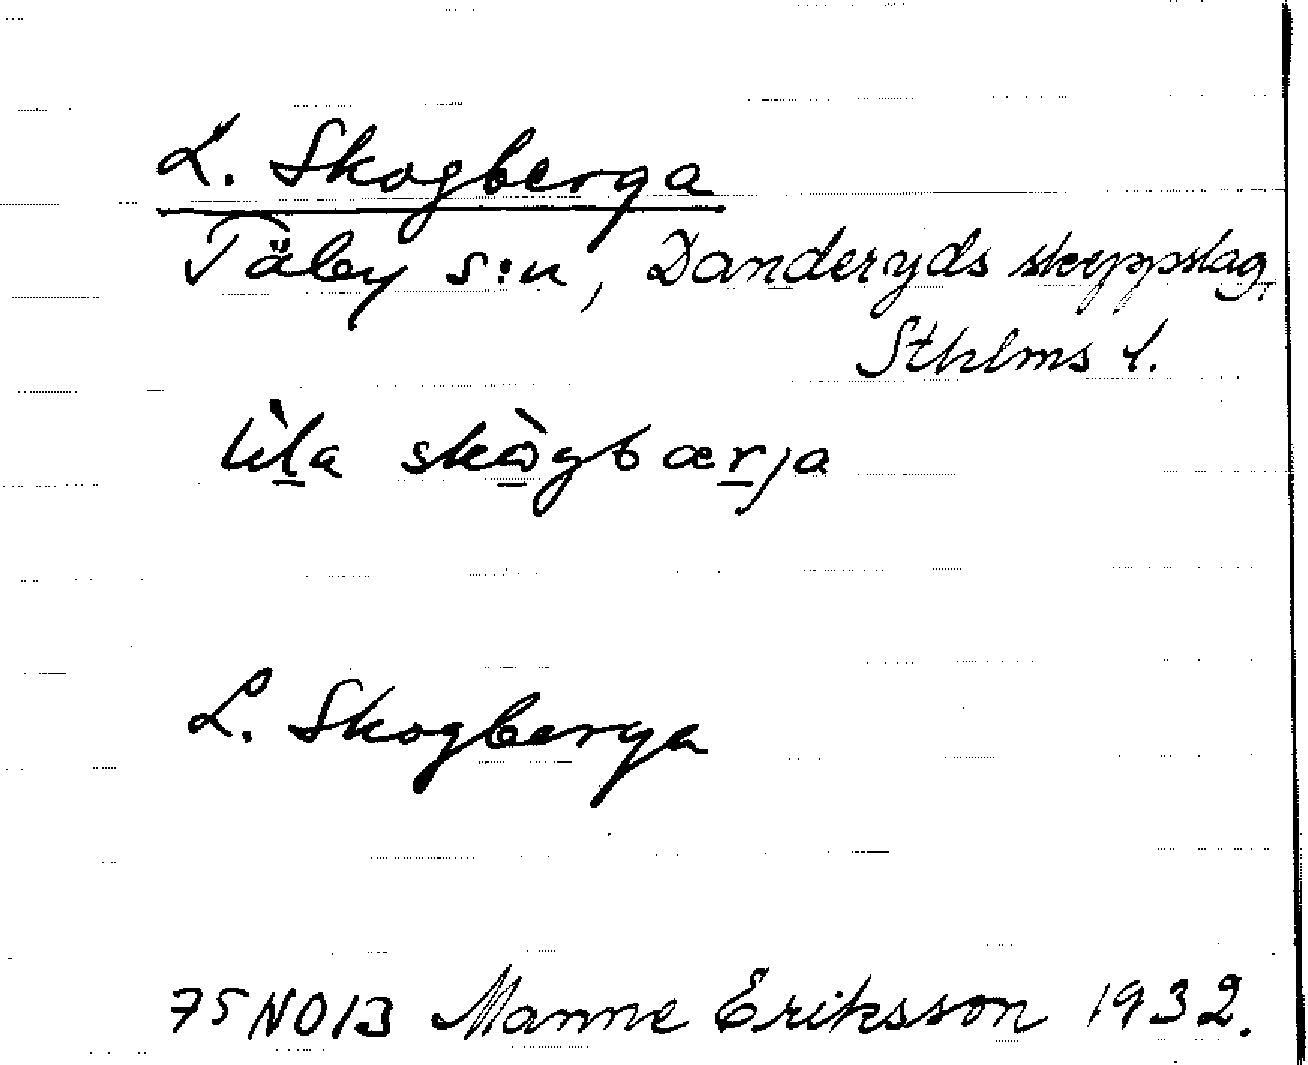 L. Skogberga
Täby s:n, Danderyds skeppslag,
Sthlms l.
lìl̲a skò̲gbær̲ja
L. Skogberga
75 NO 13 Manne Eriksson 1932.